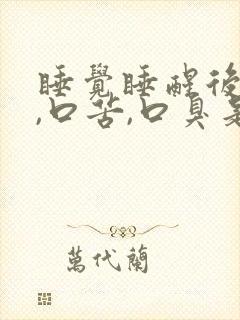 睡覺睡醒後
,口苦,口臭是
萬代蘭